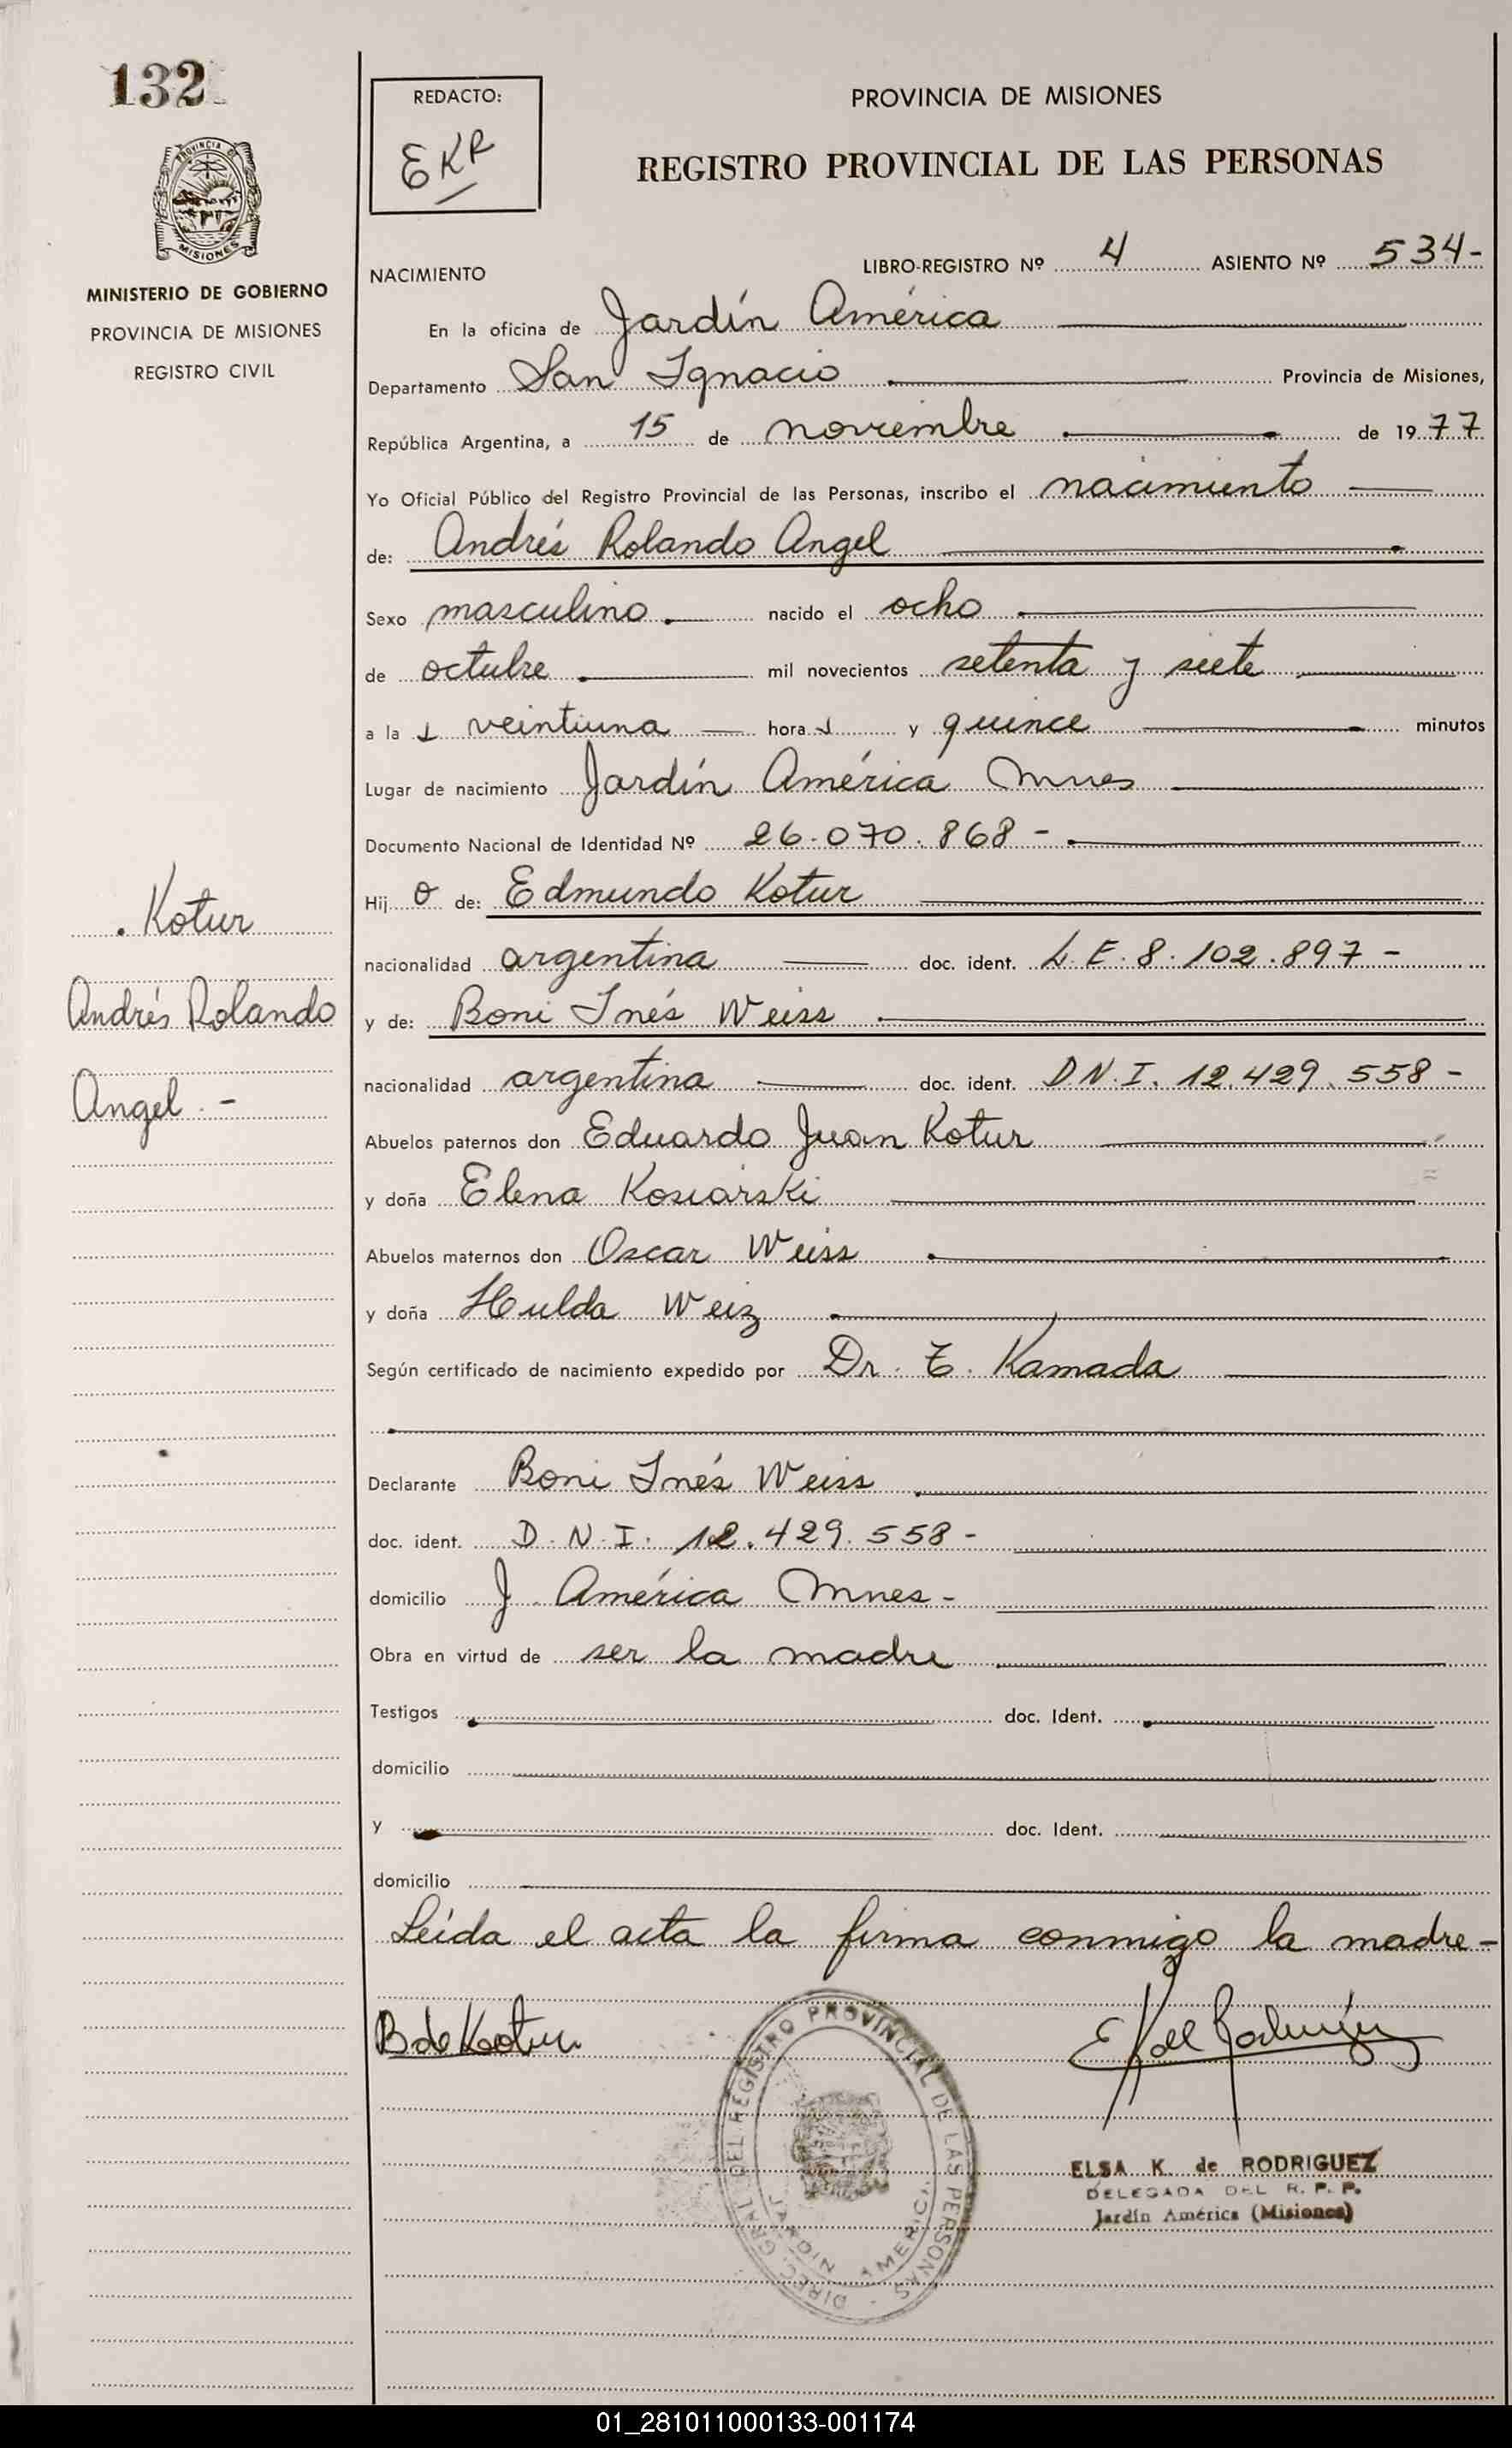 132
PROVINCIA DE
MISIONES
MINISTERIO DE GOBIERNO
PROVINCIA DE MISIONES
REGISTRO CIVIL
REDACTO:
EKR
PROVINCIA DE MISIONES
REGISTRO PROVINCIAL DE LAS PERSONAS
NACIMIENTO
LIBRO-REGISTRO Nº 4 ASIENTO Nº 534-
En la oficina de Jardín América
Departamento San Ignacio Provincia de Misiones,
República Argentina, a 15 de noviembre de 1977
Yo Oficial Público del Registro Provincial de las Personas, inscribo el nacimiento
de: Andrés Rolando Angel
Sexo masculino. nacido el ocho
de octubre mil novecientos setenta y siete
a la s veintiuna hora s y quince minutos
Lugar de nacimiento Jardín América Mnes
Documento Nacional de Identidad Nº 26.070.868-
Hij o de: Edmundo Kotur
nacionalidad argentina doc. ident. L.E. 8.102.897-
y de: Boni Inés Weiss
nacionalidad argentina doc. ident. D.N.I. 12.429.558-
Abuelos paternos don Eduardo Juan Kotur
y doña Elena Kosiarski
Abuelos maternos don Oscar Weiss
y doña Hulda Weiz
Según certificado de nacimiento expedido por Dr. T. Kamada
Declarante Boni Inés Weiss
doc. ident. D.N.I. 12.429.558-
domicilio J. América Mnes-
Obra en virtud de ser la madre
Testigos doc. Ident.
domicilio
y doc. Ident.
domicilio
Leída el acta la firma conmigo la madre-
. Kotur
Andrés Rolando
Angel.-
B de Kotur
DIREC. GRAL. DEL REGISTRO PROVINCIAL DE LAS PERSONAS
JARDIN AMERICA
ELSA K. de RODRIGUEZ
DELEGADA DEL R. P. P.
Jardín América (Misiones)
01_281011000133-001174